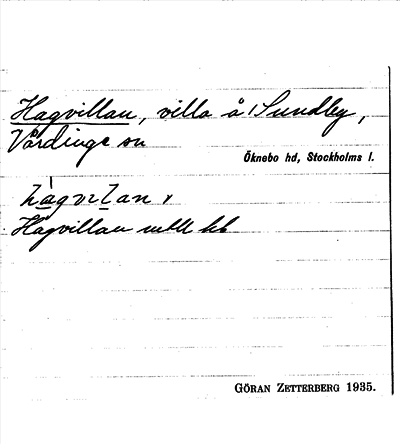 Hagvillan, villa å Sundby,
Vårdinge sn
Öknebo hd, Stockholms l.
hàgvilan
Hagvillan
GÖRAN ZETTERBERG 1935.